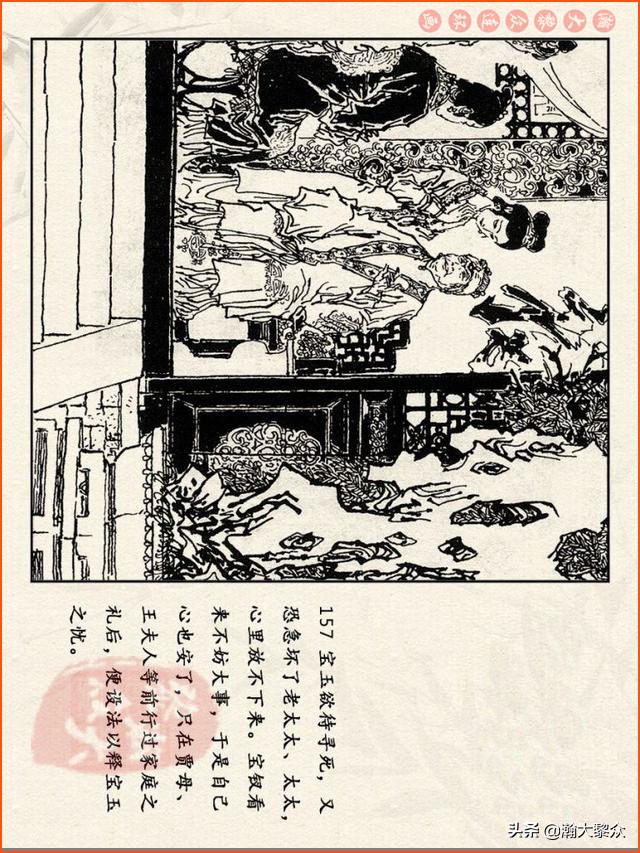 瀚大黎众连环画
157 宝玉欲待寻死，又
恐急坏了老太太、太太，
心里放不下来。宝钗看
来不妨大事，于是自己
心也安了，只在贾母、
王夫人等前行过家庭之
礼后，便设法以释宝玉
之忧。
头条 @瀚大黎众